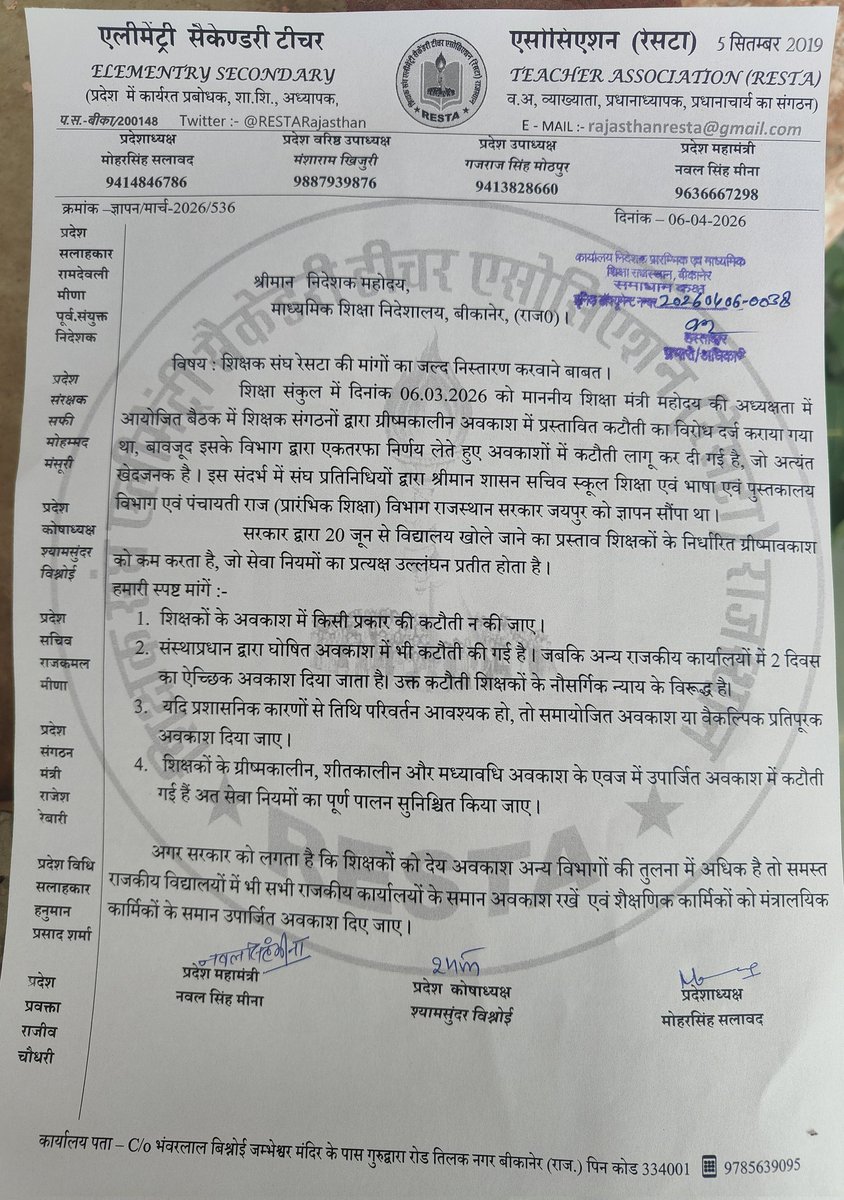 एलीमेंट्री सैकेण्डरी टीचर एसोसिएशन (रेसटा) 5 सितम्बर 2019
ELEMENTRY SECONDARY TEACHER ASSOCIATION (RESTA)
(प्रदेश में कार्यरत प्रबोधक, शा.शि., अध्यापक, व.अ, व्याख्याता, प्रधानाध्यापक, प्रधानाचार्य का संगठन)
RESTA
प.स.-बीका/200148 Twitter :- @RESTARajasthan E - MAIL :- rajasthanresta@gmail.com
प्रदेशाध्यक्ष प्रदेश वरिष्ठ उपाध्यक्ष प्रदेश उपाध्यक्ष प्रदेश महामंत्री
मोहरसिंह सलावद मंशाराम खिजुरी गजराज सिंह मोठपुर नवल सिंह मीना
9414846786 9887939876 9413828660 9636667298
क्रमांक –ज्ञापन/मार्च-2026/536 दिनांक – 06-04-2026
प्रदेश
सलाहकार
रामदेवली
मीणा
पूर्व.संयुक्त
निदेशक
प्रदेश
संरक्षक
सफी
मोहम्मद
मंसूरी
प्रदेश
कोषाध्यक्ष
श्यामसुंदर
विश्नोई
प्रदेश
सचिव
राजकमल
मीणा
प्रदेश
संगठन
मंत्री
राजेश
रेबारी
प्रदेश विधि
सलाहकार
हनुमान
प्रसाद शर्मा
प्रदेश
प्रवक्ता
राजीव
चौधरी
कार्यालय निदेशक, प्रारम्भिक एवं माध्यमिक
शिक्षा राजस्थान, बीकानेर
समाधान कक्ष
20260406-0038
हस्ताक्षर
प्रभारी अधिकारी
श्रीमान निदेशक महोदय,
माध्यमिक शिक्षा निदेशालय, बीकानेर, (राज0)।
विषय : शिक्षक संघ रेसटा की मांगों का जल्द निस्तारण करवाने बाबत।
शिक्षा संकुल में दिनांक 06.03.2026 को माननीय शिक्षा मंत्री महोदय की अध्यक्षता में
आयोजित बैठक में शिक्षक संगठनों द्वारा ग्रीष्मकालीन अवकाश में प्रस्तावित कटौती का विरोध दर्ज कराया गया
था, बावजूद इसके विभाग द्वारा एकतरफा निर्णय लेते हुए अवकाशों में कटौती लागू कर दी गई है, जो अत्यंत
खेदजनक है। इस संदर्भ में संघ प्रतिनिधियों द्वारा श्रीमान शासन सचिव स्कूल शिक्षा एवं भाषा एवं पुस्तकालय
विभाग एवं पंचायती राज (प्रारंभिक शिक्षा) विभाग राजस्थान सरकार जयपुर को ज्ञापन सौंपा था।
सरकार द्वारा 20 जून से विद्यालय खोले जाने का प्रस्ताव शिक्षकों के निर्धारित ग्रीष्मावकाश
को कम करता है, जो सेवा नियमों का प्रत्यक्ष उल्लंघन प्रतीत होता है।
हमारी स्पष्ट मांगें :-
1. शिक्षकों के अवकाश में किसी प्रकार की कटौती न की जाए।
2. संस्थाप्रधान द्वारा घोषित अवकाश में भी कटौती की गई है। जबकि अन्य राजकीय कार्यालयों में 2 दिवस
का ऐच्छिक अवकाश दिया जाता है। उक्त कटौती शिक्षकों के नौसर्गिक न्याय के विरूद्ध है।
3. यदि प्रशासनिक कारणों से तिथि परिवर्तन आवश्यक हो, तो समायोजित अवकाश या वैकल्पिक प्रतिपूरक
अवकाश दिया जाए।
4. शिक्षकों के ग्रीष्मकालीन, शीतकालीन और मध्यावधि अवकाश के एवज में उपार्जित अवकाश में कटौती
गई हैं अत सेवा नियमों का पूर्ण पालन सुनिश्चित किया जाए।
अगर सरकार को लगता है कि शिक्षकों को देय अवकाश अन्य विभागों की तुलना में अधिक है तो समस्त
राजकीय विद्यालयों में भी सभी राजकीय कार्यालयों के समान अवकाश रखें एवं शैक्षणिक कार्मिकों को मंत्रालयिक
कार्मिकों के समान उपार्जित अवकाश दिए जाए।
नवलसिंह मीना
प्रदेश महामंत्री प्रदेश कोषाध्यक्ष प्रदेशाध्यक्ष
नवल सिंह मीना श्यामसुंदर विश्नोई मोहरसिंह सलावद
कार्यालय पता – C/o भंवरलाल बिश्नोई जम्भेश्वर मंदिर के पास गुरुद्वारा रोड तिलक नगर बीकानेर (राज.) पिन कोड 334001 9785639095